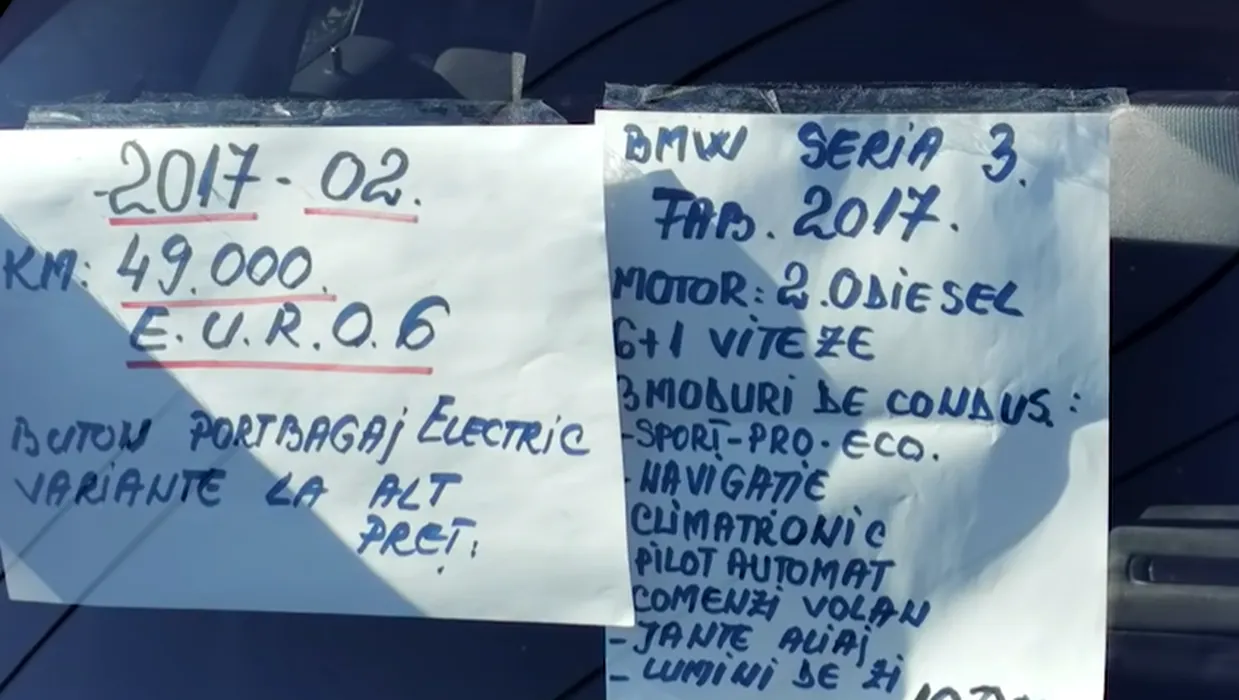 -2017-02.
KM: 49.000.
E.U.R.O.6
BUTON PORTBAGAj ELECTRiC
VARiANTE LA ALT
PREȚ.
BMW SERiA 3.
FAB. 2017.
MOTOR: 2.0DiESEL
6+1 ViTEZE
3 MODURi DE CONDUS:
-SPORT-PRO-ECO.
-NAVIGAȚIE
CLiMATRONiC
PiLOT AUTOMAT
COMENZi VOLAN
-JANTE ALiAj
-LUMiNi DE Zi